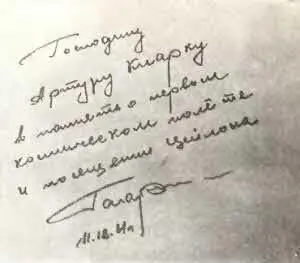 Господину
Артуру Кларку
в память о первом
космическом полёте
и посещении Цейлона
Гагарин
11.12.61г.